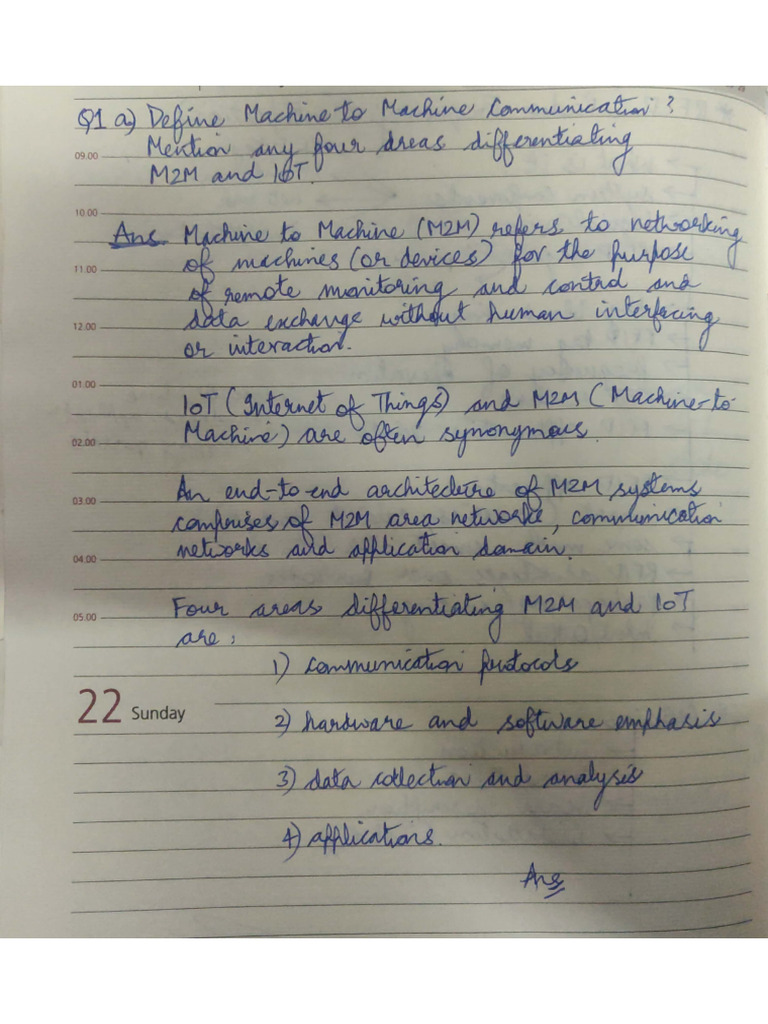 Q1 a) Define Machine to Machine Communication?
Mention any four areas differentiating
09.00
M2M and IoT.
10.00
Ans. Machine to Machine (M2M) refers to networking
of machines (or devices) for the purpose
11.00
of remote monitoring and control and
data exchange without human interfacing
12.00
or interaction.
01.00
IoT (Internet of Things) and M2M (Machine-to-
Machine) are often synonymous.
02.00
An end-to-end architecture of M2M systems
03.00
comprises of M2M area networks, communication
networks and application domain.
04.00
Four areas differentiating M2M and IoT
05.00
are:
1) communication protocols
22 Sunday
2) hardware and software emphasis
3) data collection and analysis
4) applications.
Ans